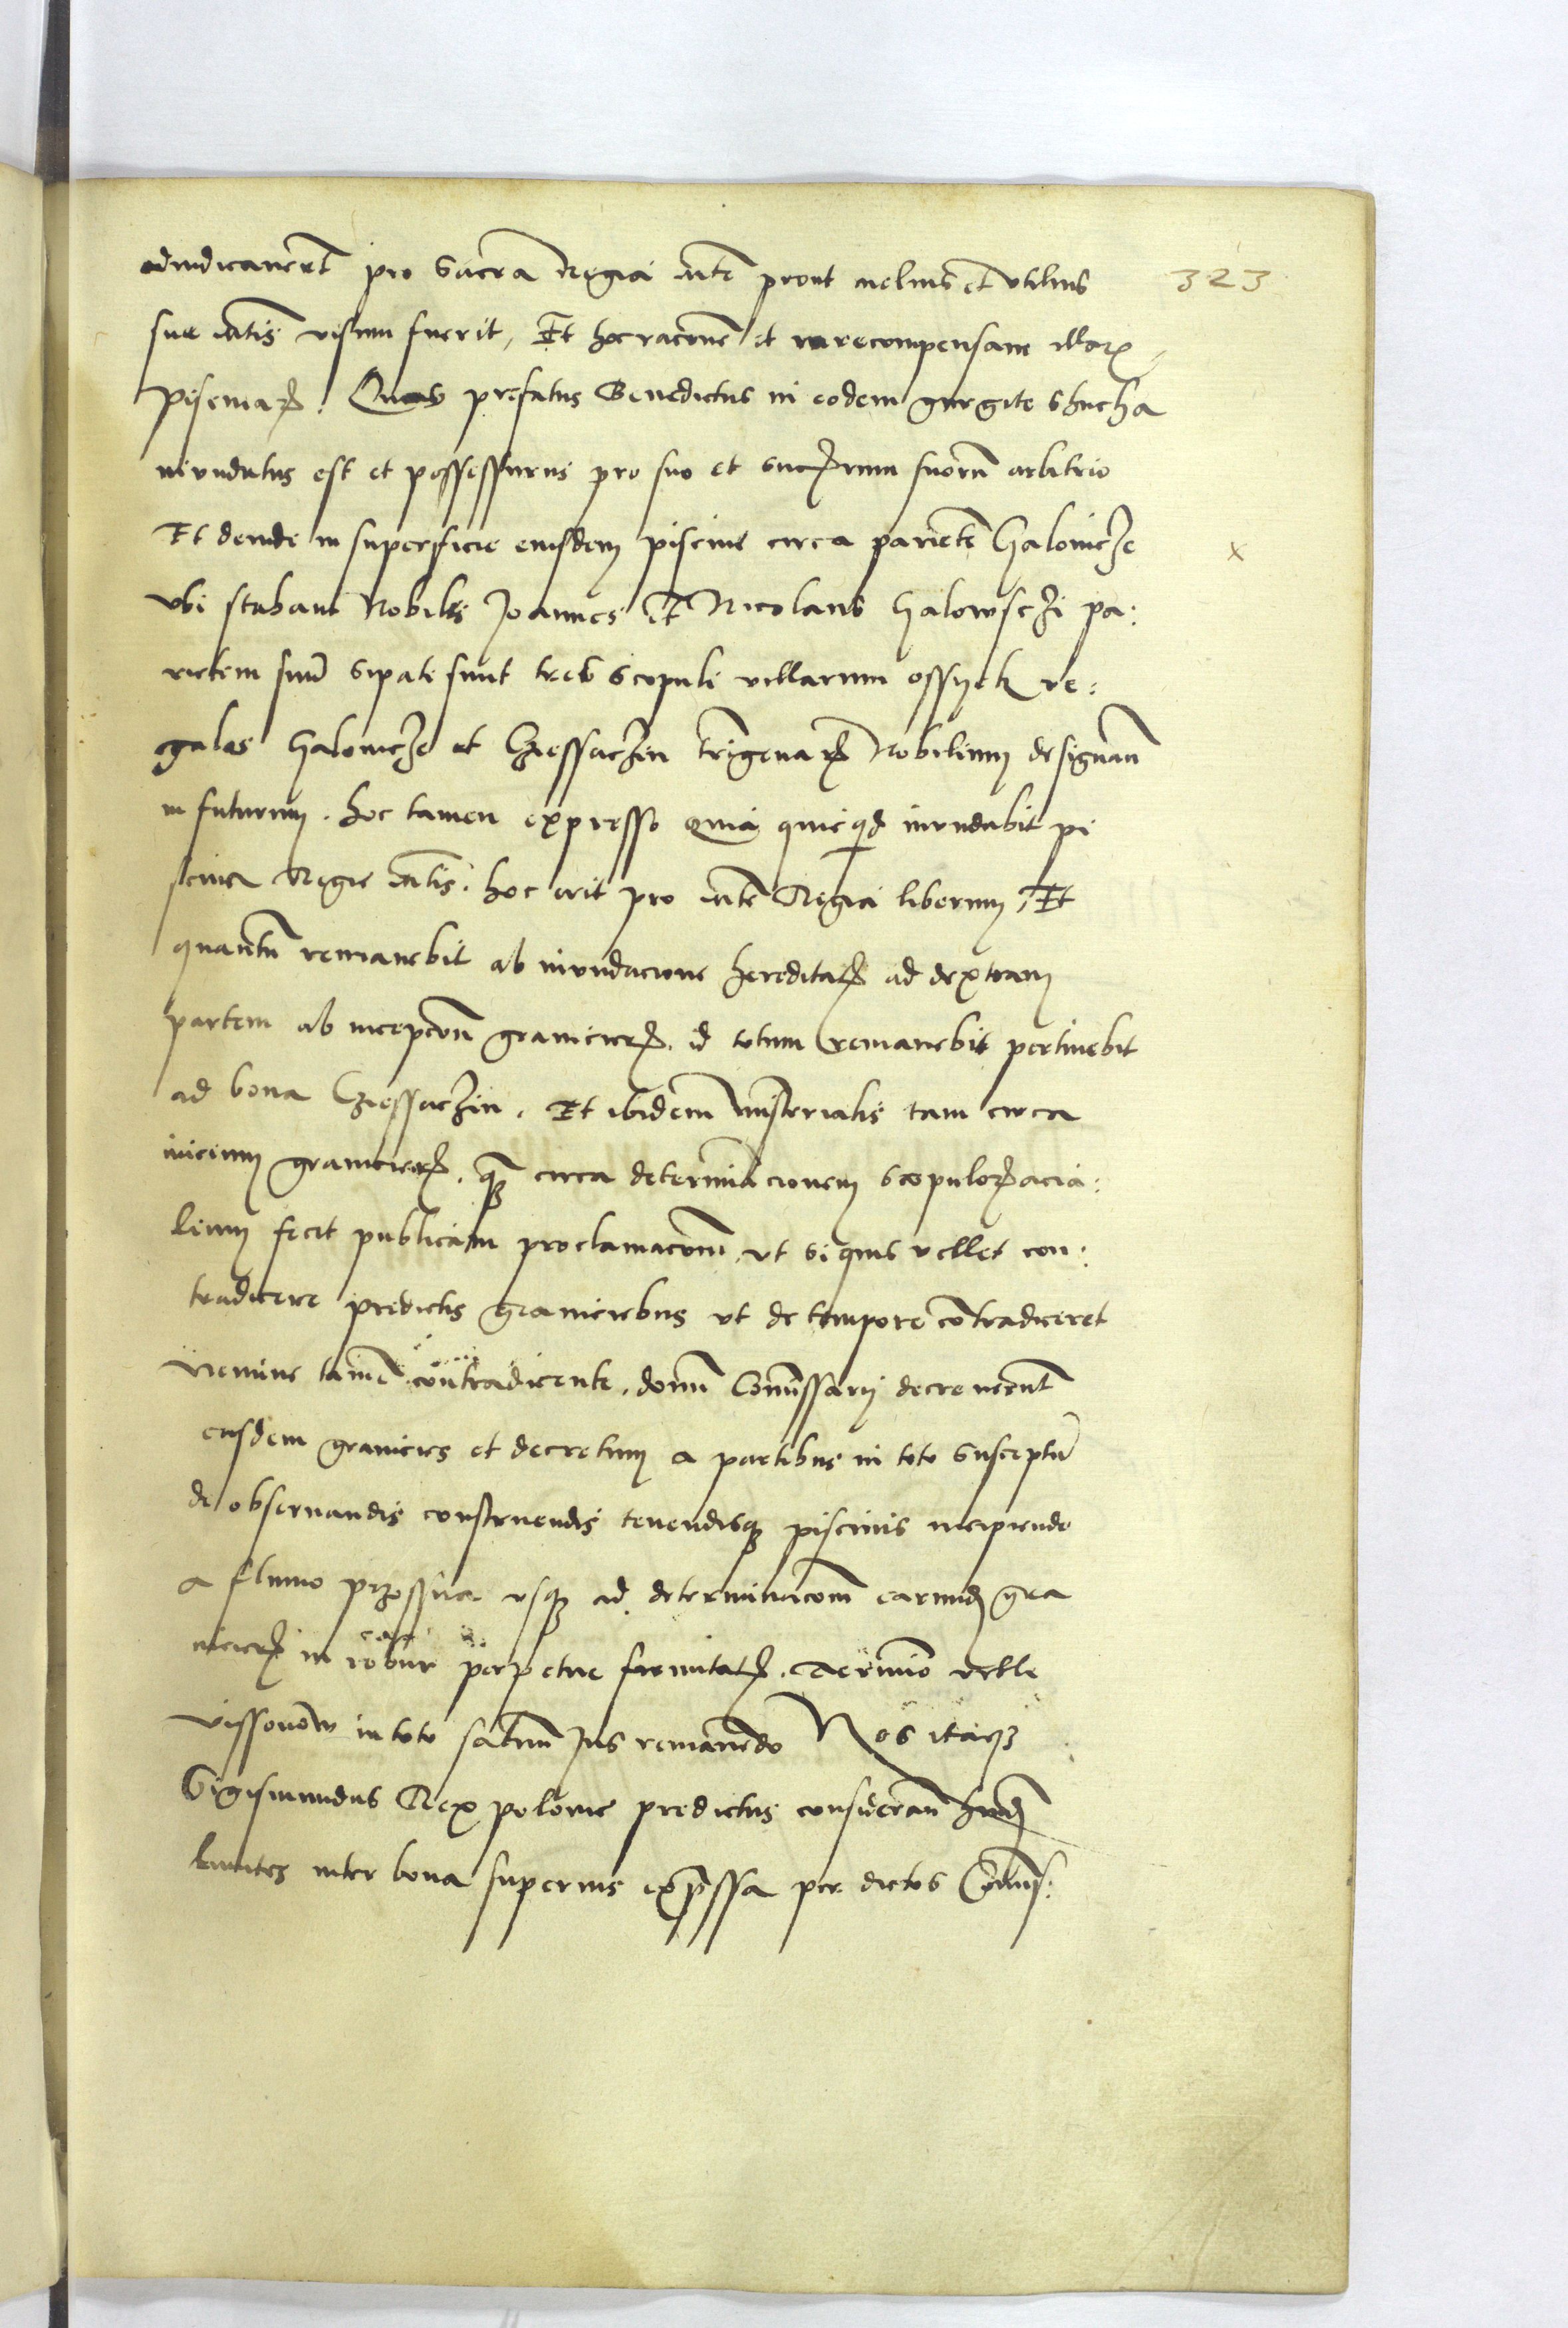 323
adiudicaverunt pro Sacra Regia Mte prout melius et utilius
sue Mtis visum fuerit, Et hoc racione et in recompensam illarum
piscinarum. Quas prefatus Benedictus in eodem gurgite Shucha
inundatus est et possessurus pro suo et succrum suorum arbitrio
Et deinde in superficie eiusdem piscine circa parietem Halowicze
x
ubi stabant Nobiles Joannes et Nicolaus Halowsczi pa:
rietem suum sipate sunt tres scopuli villarum ossyek re:
gales Halowicze et Czessaczin Nobilium designan
in futurum. hoc tamen expresso quia quicquid inundabit pi
scina Regie Mtis. hoc erit pro Mte Regia liberum, Et
quantum remanebit ab inundacione hereditatum ad dextram
partem ab incepcione granicierum. id totum remanebit pertinebit
ad bona Czessaczin. Et ibidem ministerialis tam circa
inicium granicierum. quam circa determinacionem scopulorum acia:
lium fecit publicam proclamacionem. ut si quis vellet con:
tradicere predictis graniciebus ut de tempore contradiceret
Nemine tamen contradicente. domini Comissarij decreverunt
easdem granicies et decretum a partibus in toto susceptum
de observandis construendis tenendisque piscinis incipiendo
a fluvio usque ad determinacionem earundem gra
nicierum in robur perpetue firmitatis. Termino
in toto salvum Jus remanendo Nos itaque
Sigismundus Rex polonie predictus consideran huiusmodi
limites inter bona superius expressa per dictos Comis: